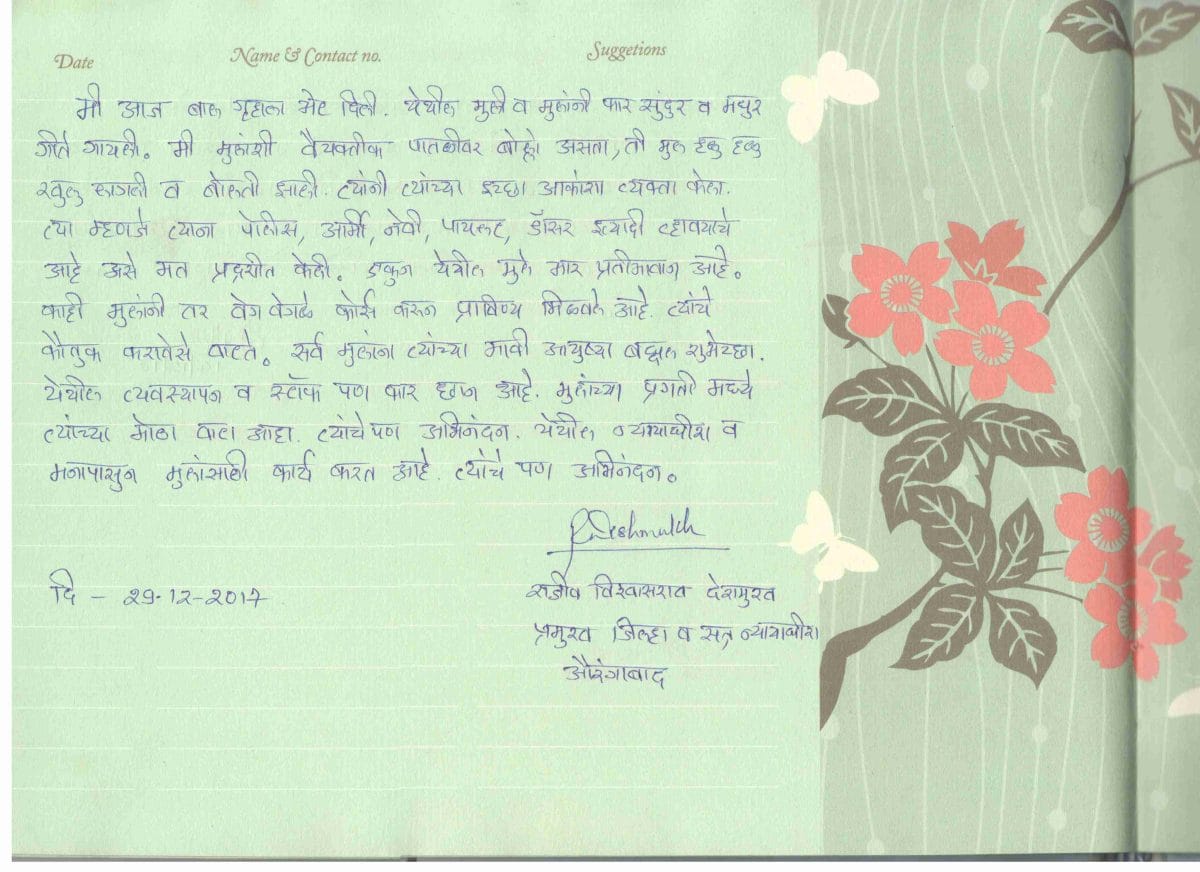 Date Name & Contact no. Suggetions
मी आज बाल गृहाला भेट दिली. येथील मुली व मुलांनी फार सुंदुर व मधुर
गीते गायली. मी मुलांशी वैयक्तीक पातळीवर बोल्लो असता, ती मुल हळु हळु
खुलु लागली व बोलती झाली. त्यांनी त्यांच्या इच्छा आकांशा व्यक्ता केला.
त्या म्हणजे त्याना पोलीस, आर्मी, नेवी, पायलट, डॉसर इत्यादी व्हावयाचे
आहे असे मत प्रद्रशीत केली. एकुन येथील मुले फार प्रतीभावान आहे.
काही मुलांनी तर वेगवेगळे कोर्स करुन प्राविण्य मिळवले आहे. त्यांचे
कौतुक करावेसे वाटते. सर्व मुलांना त्यांच्या भावी आयुष्या बद्दल शुभेच्छा.
येथील व्यवस्थापन व स्टॉफ पण फार छान आहे. मुलांच्या प्रगती मध्ये
त्यांच्या मोठा वाटा आहा. त्यांचे पण अभिनंदन. येथील न्यायाधीश व
मनापासुन मुलांसाठी कार्य करत आहे. त्यांचे पण अभिनंदन.
Deshmukh
दि - 29-12-2017 राजीव विश्वासराव देशमुख
प्रमुख जिल्हा व सत्र न्यायाधीश
औरंगाबाद